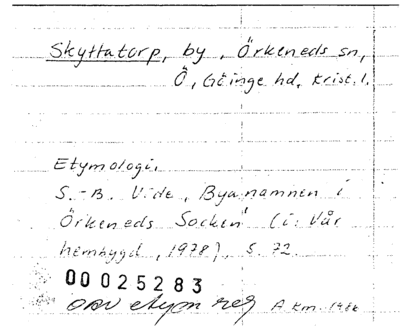 Skyttatorp, by, Örkeneds sn,
Ö, Göinge hd, Krist. l.
Etymologi.
S.-B. Vide, Byanamnen i
Örkeneds Socken" (i: Vår
hembygd, 1978), s. 72.
00025283
etym reg A Km.